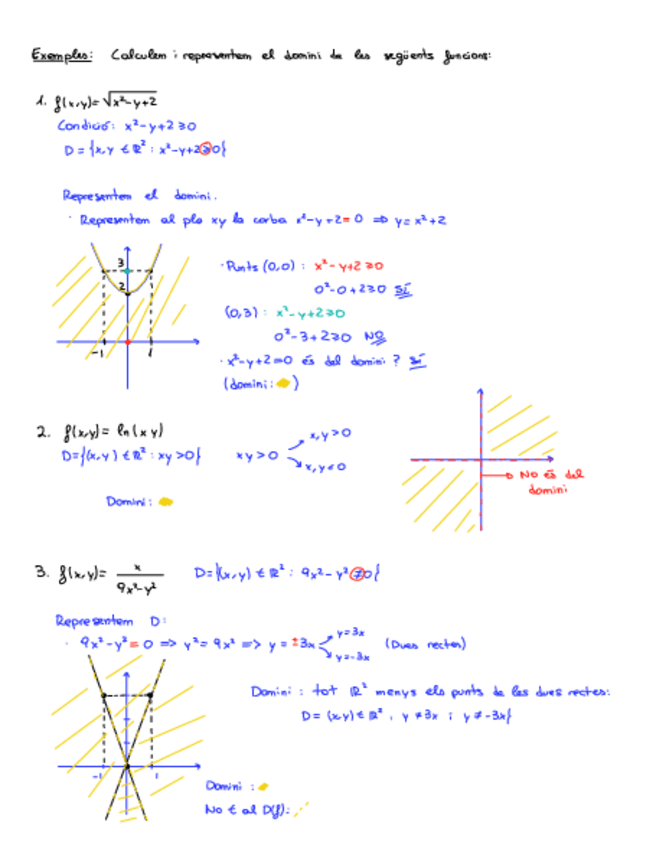 Exemples: Calculem i representem el domini de les següents funcions:
1. f(x,y)= √x²-y+2
Condició: x²-y+2 ≥0
D = {x,y ∈ ℝ² : x²-y+2≥0}
Representem el domini.
· Representem al pla xy la corba x²-y+2=0 => y=x²+2
3
2
-1 1
· Punts (0,0) : x²-y+2 ≥0
0²-0+2≥0 SÍ
(0,3) : x²-y+2≥0
0²-3+2≥0 NO
· x²-y+2=0 és del domini? SÍ
(domini: )
2. f(x,y)= ln(xy)
D={(x,y) ∈ ℝ² : xy >0} xy>0 x,y>0
x,y<0
No és del
domini
Domini:
3. f(x,y)= x/9x²-y² D={(x,y) ∈ ℝ² : 9x²-y²≠0}
Representem D:
· 9x²-y²=0 => y²=9x² => y=±3x y=3x (Dues rectes)
y=-3x
-1 1
Domini: tot ℝ² menys els punts de les dues rectes:
D= (x,y)∈ℝ², y≠3x i y≠-3x}
Domini :
No ∈ al D(f):